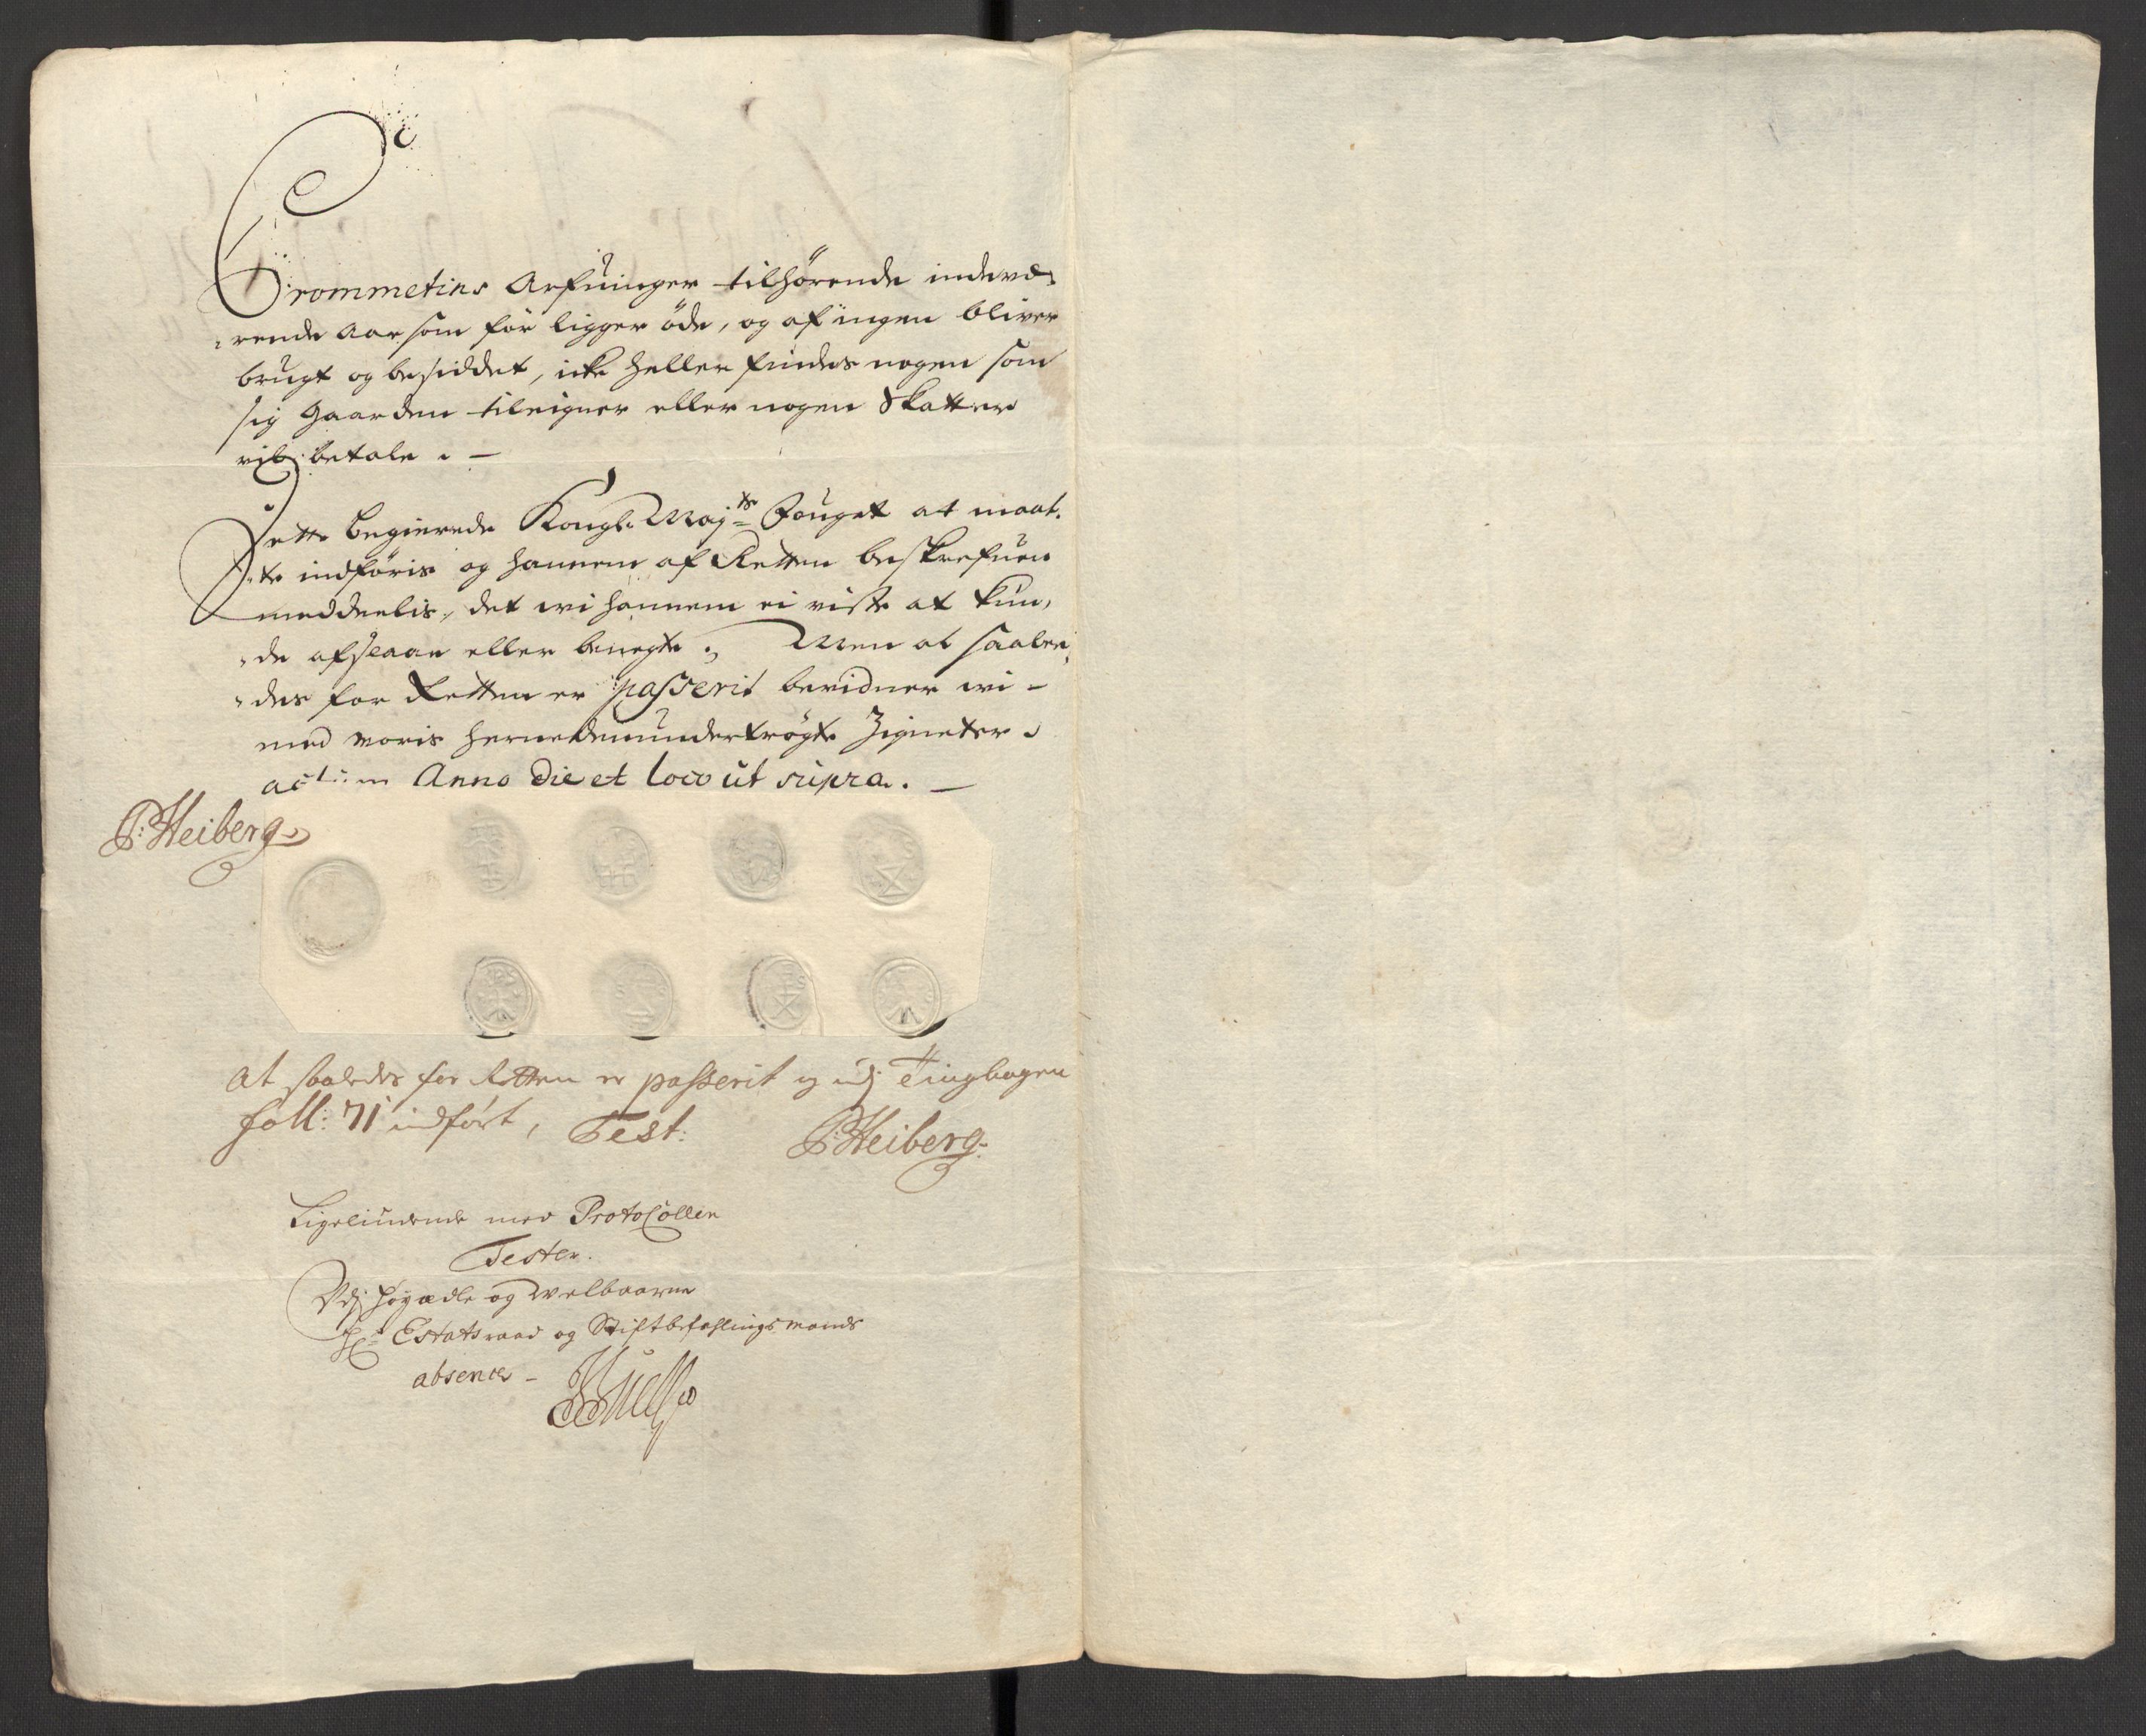 Crommetins Arfuinger tilhørende indevæ-
rende Aar som før ligger øde, og af ingen bliver
brugt og besiddet, icke heller findes nogen som
sig Gaarden tileigner eller nogen Skatter
vil betale. —
Dette begierede Kongl. Mayts Fouget at maat-
te indføris og hannem af Retten beskrefuen
meddeelis, det wi hannem ei viste at kun-
de afslaae eller benegte, Men at saale-
des for Retten er passerit bevidner wi -
med voris hernedenundertrögte Zigneter.
actum Anno Die et loco ut supra. —
P: Heiberg
At saaledes for Retten er passerit og udj Tingbogen
foll: 71 indført, Test:
P: Heiberg:
Ligeliudende med Protocollen
Tester.
Udj Høyædle og Welbaarne
Hr Estatsraad og Stiftbefahlingsmands
absence -